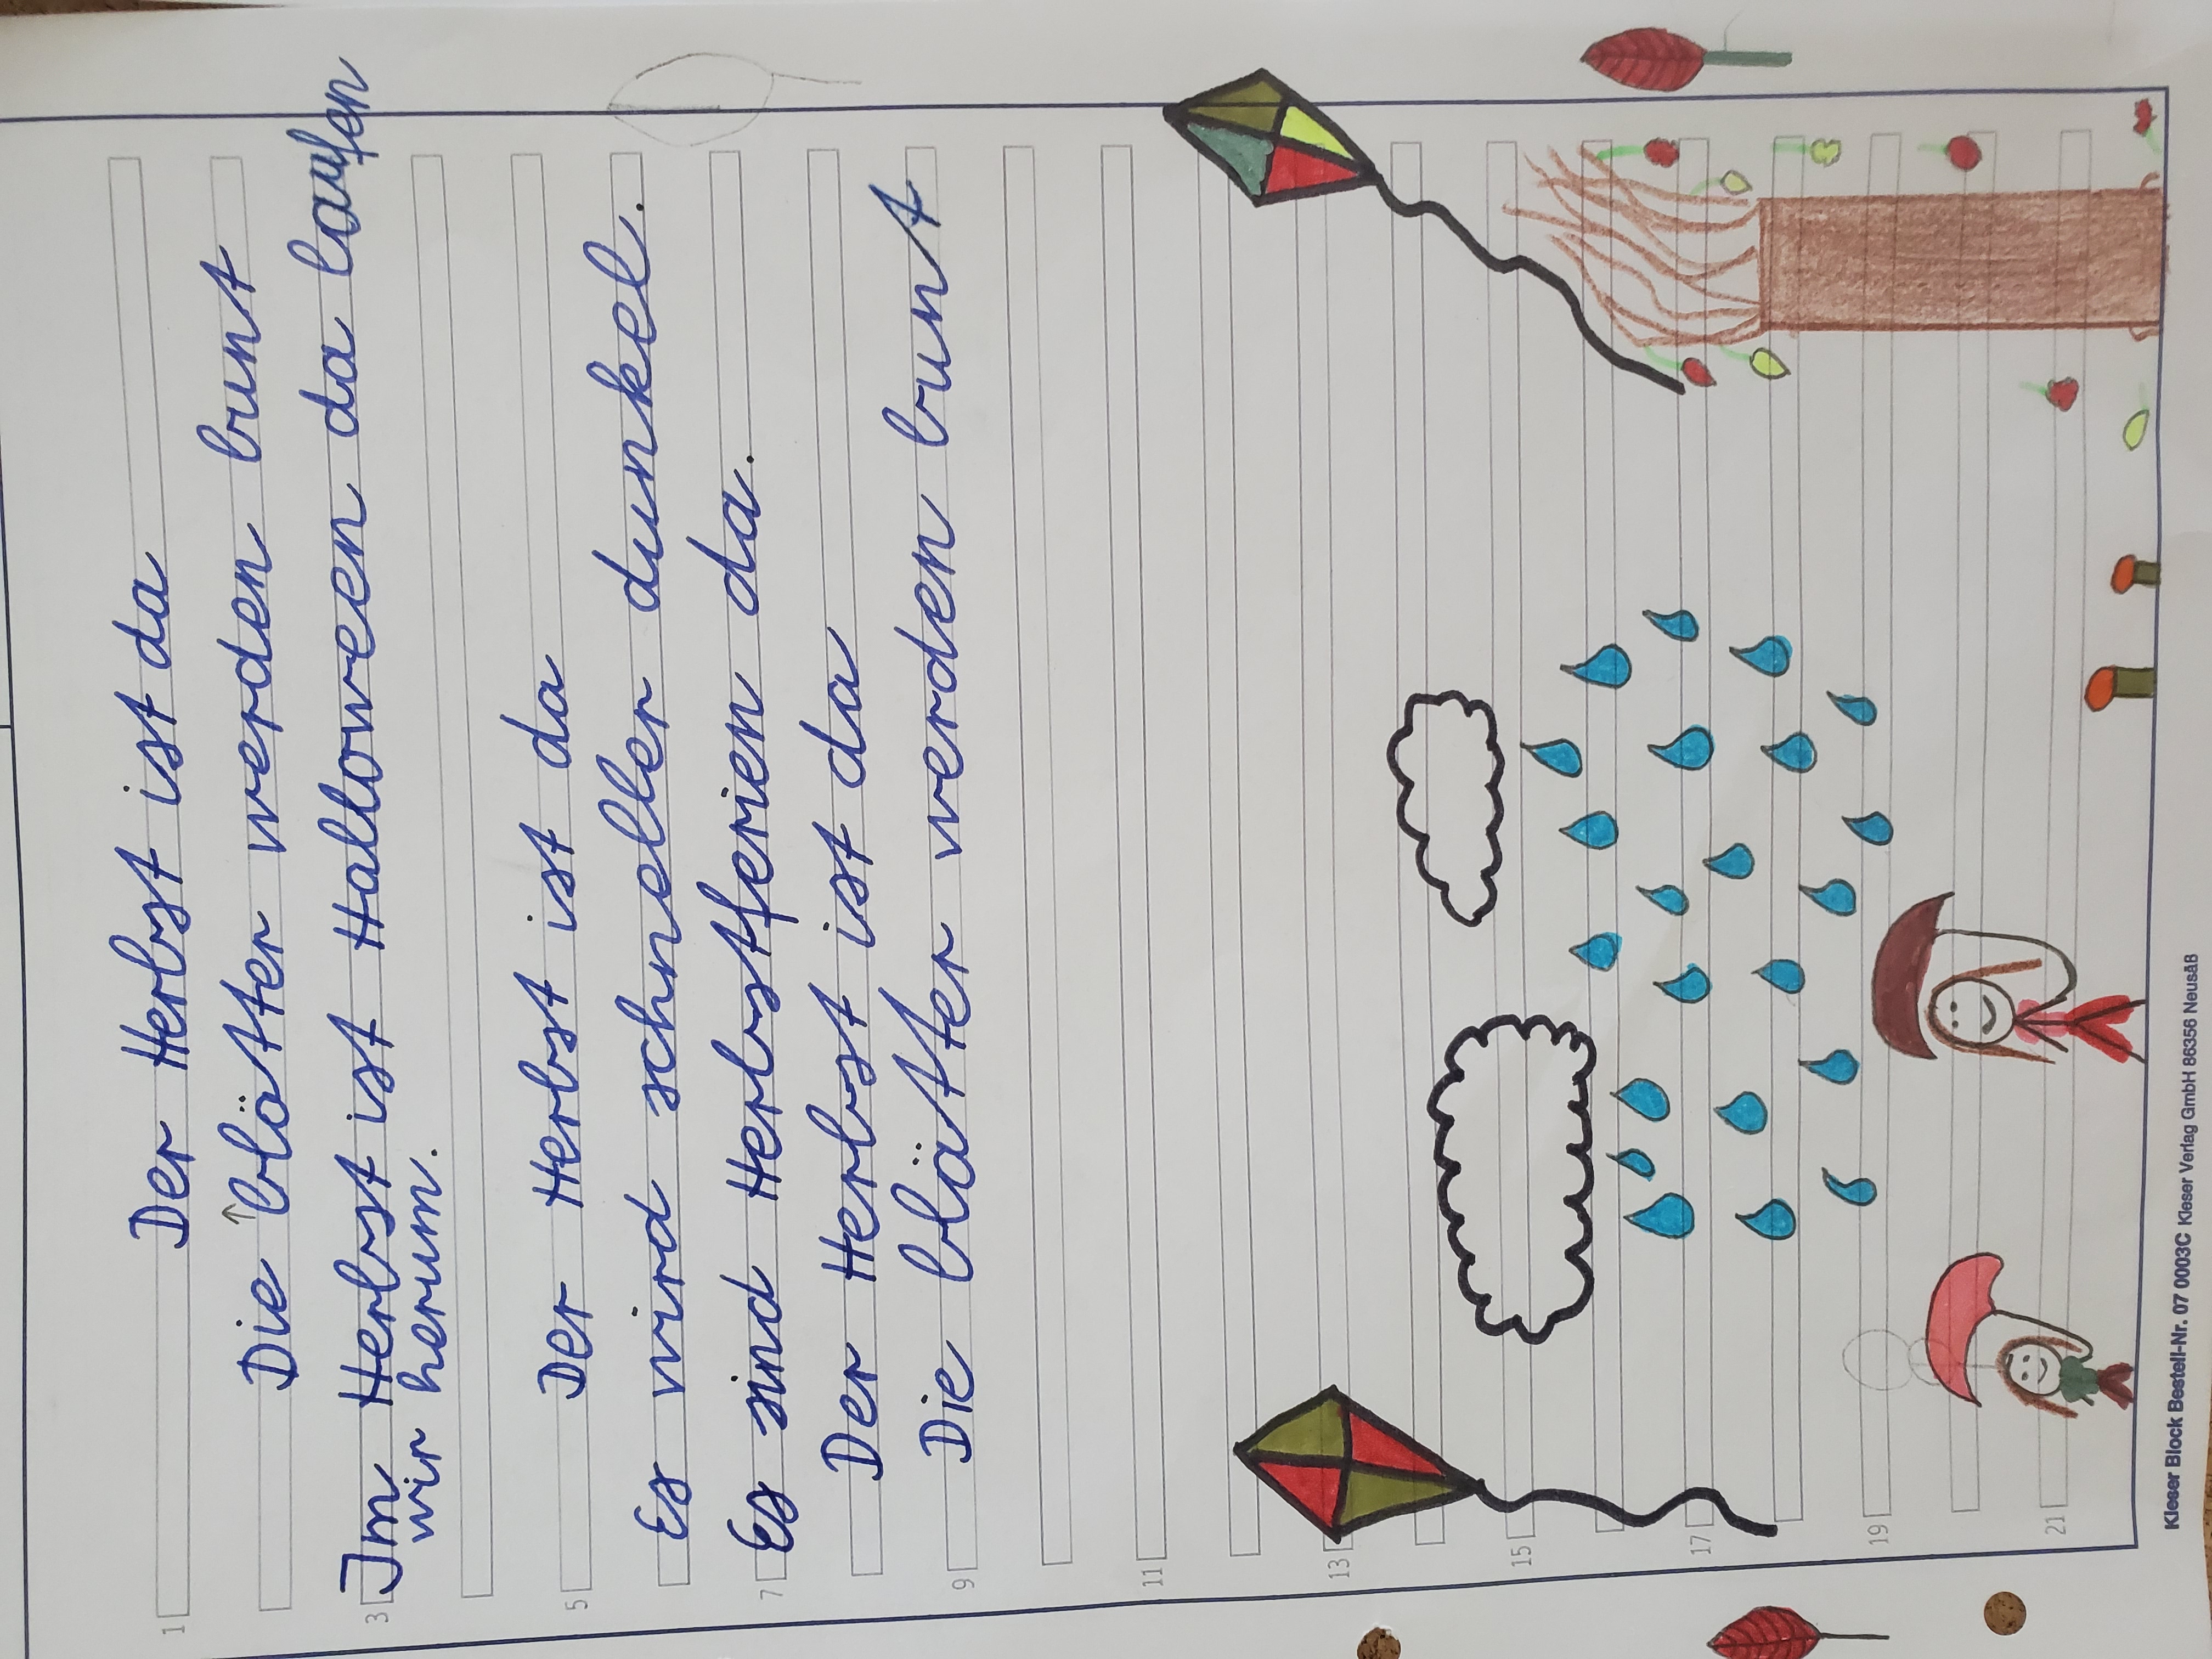 Der Herbst ist da
Die blätter werden bunt
Im Herbst ist Halloween da laufen
wir herum.
Der Herbst ist da
Es wird schneller dunkel.
Es sind Herbstferien da.
Der Herbst ist da
Die blätter werden bunt
1
3
5
7
9
11
13
15
17
19
21
Kieser Block Bestell-Nr. 07 0003C Kieser Verlag GmbH 86356 Neusäß